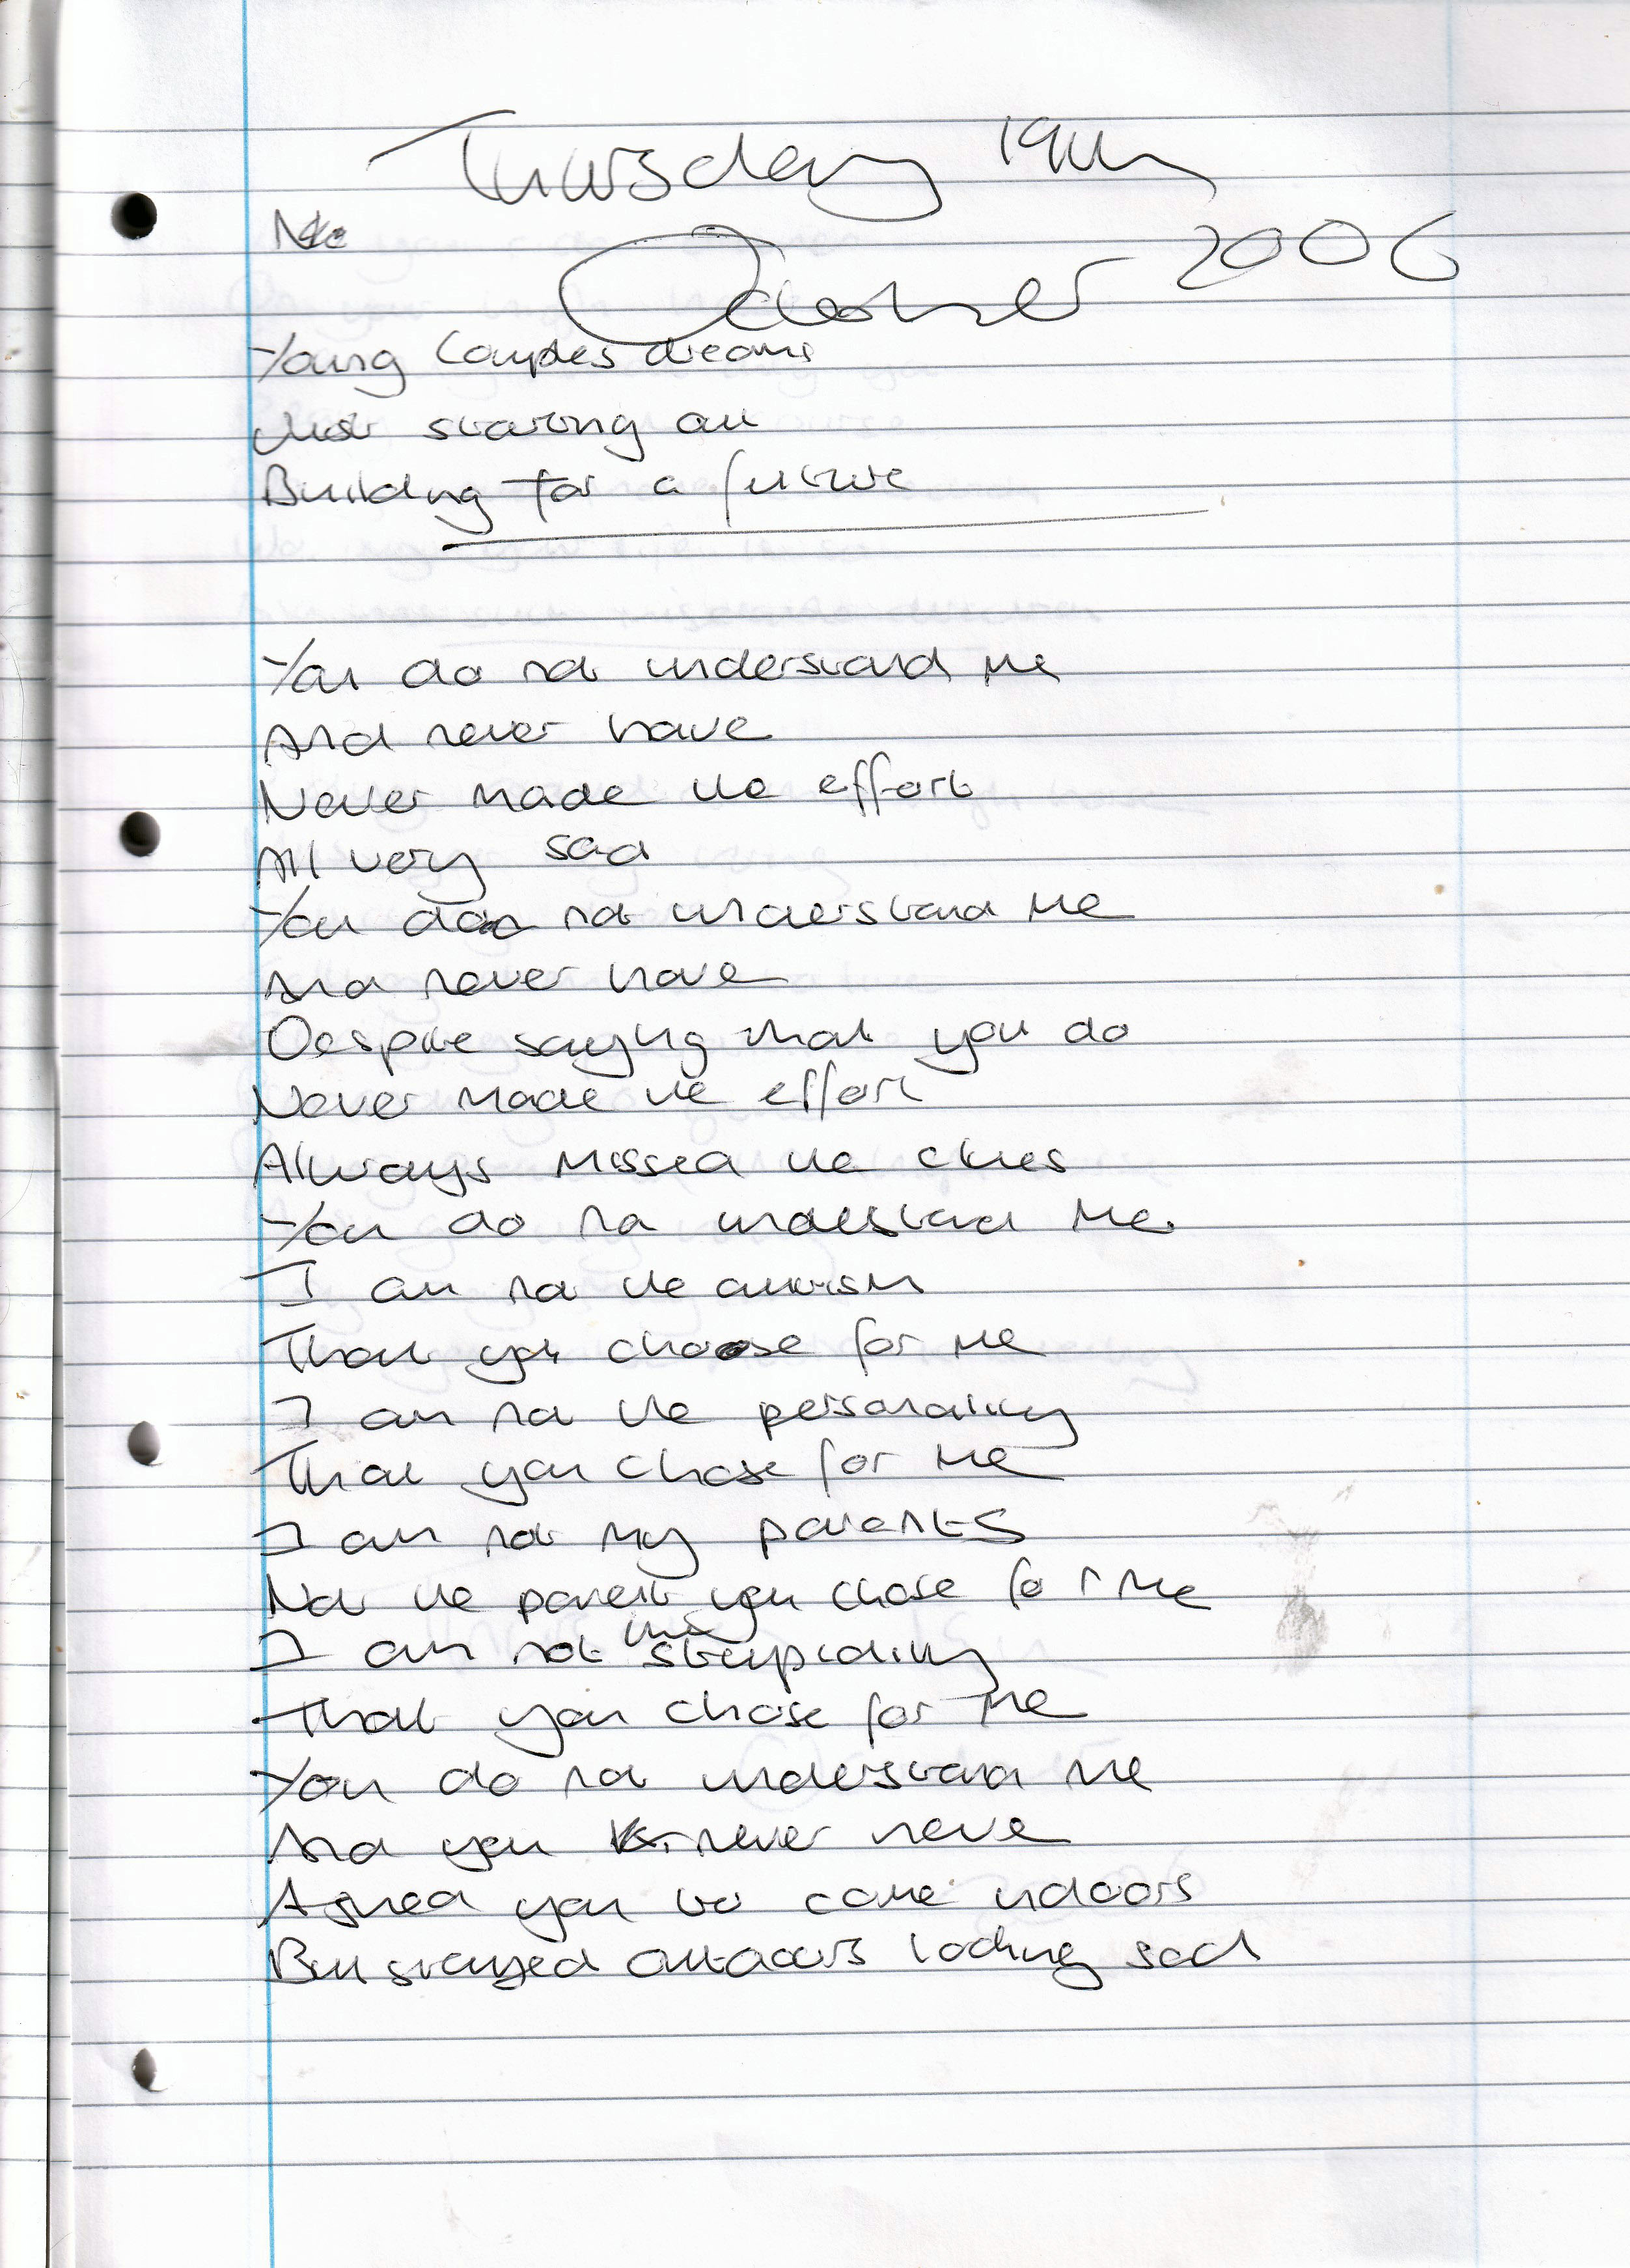 Thursday 19th
October 2006
Young Couples dreams
Just starting out
Building for a future
You do not understand me
And never have
Never made the effort
All very sad
You do not understand me
And never have
Despite saying that you do
Never made the effort
Always missed the clues
You do not understand me
I am not the autism
That you choose for me
I am not the personality
That you chose for me
I am not my parents
Not the parent you chose for me
I am not the stupidity
That you chose for me
You do not understand me
And you never have
Asked you to come indoors
But stayed outdoors looking sad